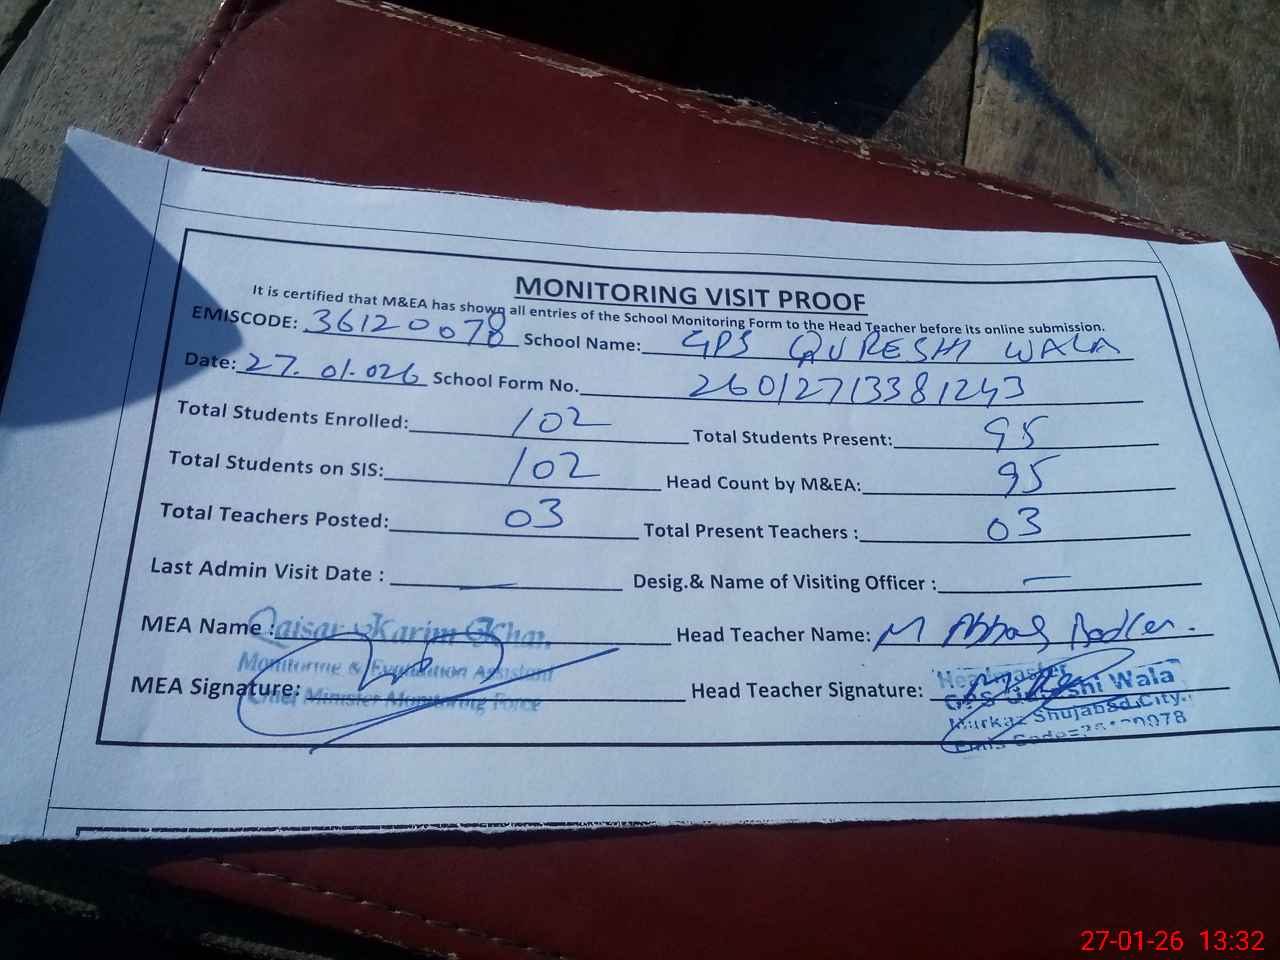 MONITORING VISIT PROOF
It is certified that M&EA has shown all entries of the School Monitoring Form to the Head Teacher before its online submission.
EMISCODE: 36120078 School Name: GPS QURESHI WALA
Date: 27.01.026 School Form No. 26012713381243
Total Students Enrolled: 102 Total Students Present: 95
Total Students on SIS: 102 Head Count by M&EA: 95
Total Teachers Posted: 03 Total Present Teachers : 03
Last Admin Visit Date : — Desig.& Name of Visiting Officer : —
MEA Name : Qaisar Karim Khan Head Teacher Name: M Abbas
Monitoring & Evaluation Assistant
MEA Signature: Chief Minister Monitoring Force Head Teacher Signature:
Headmaster
GPS Qureshi Wala
Markaz Shujabad City.
Emis Code=36120078
27-01-26 13:32